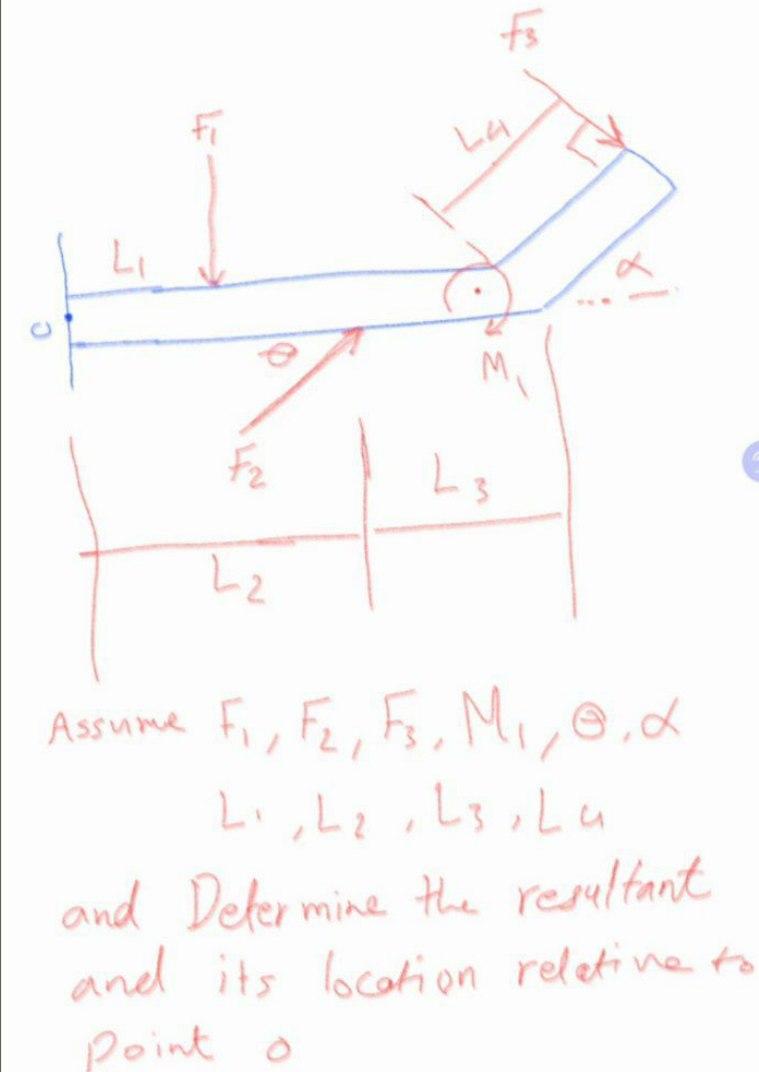 F3
F1
L4
L1
α
O
θ
M1
F2
L3
L2
Assume F1, F2, F3, M1, θ, α
L1, L2, L3, L4
and Determine the resultant
and its location relative to
point o